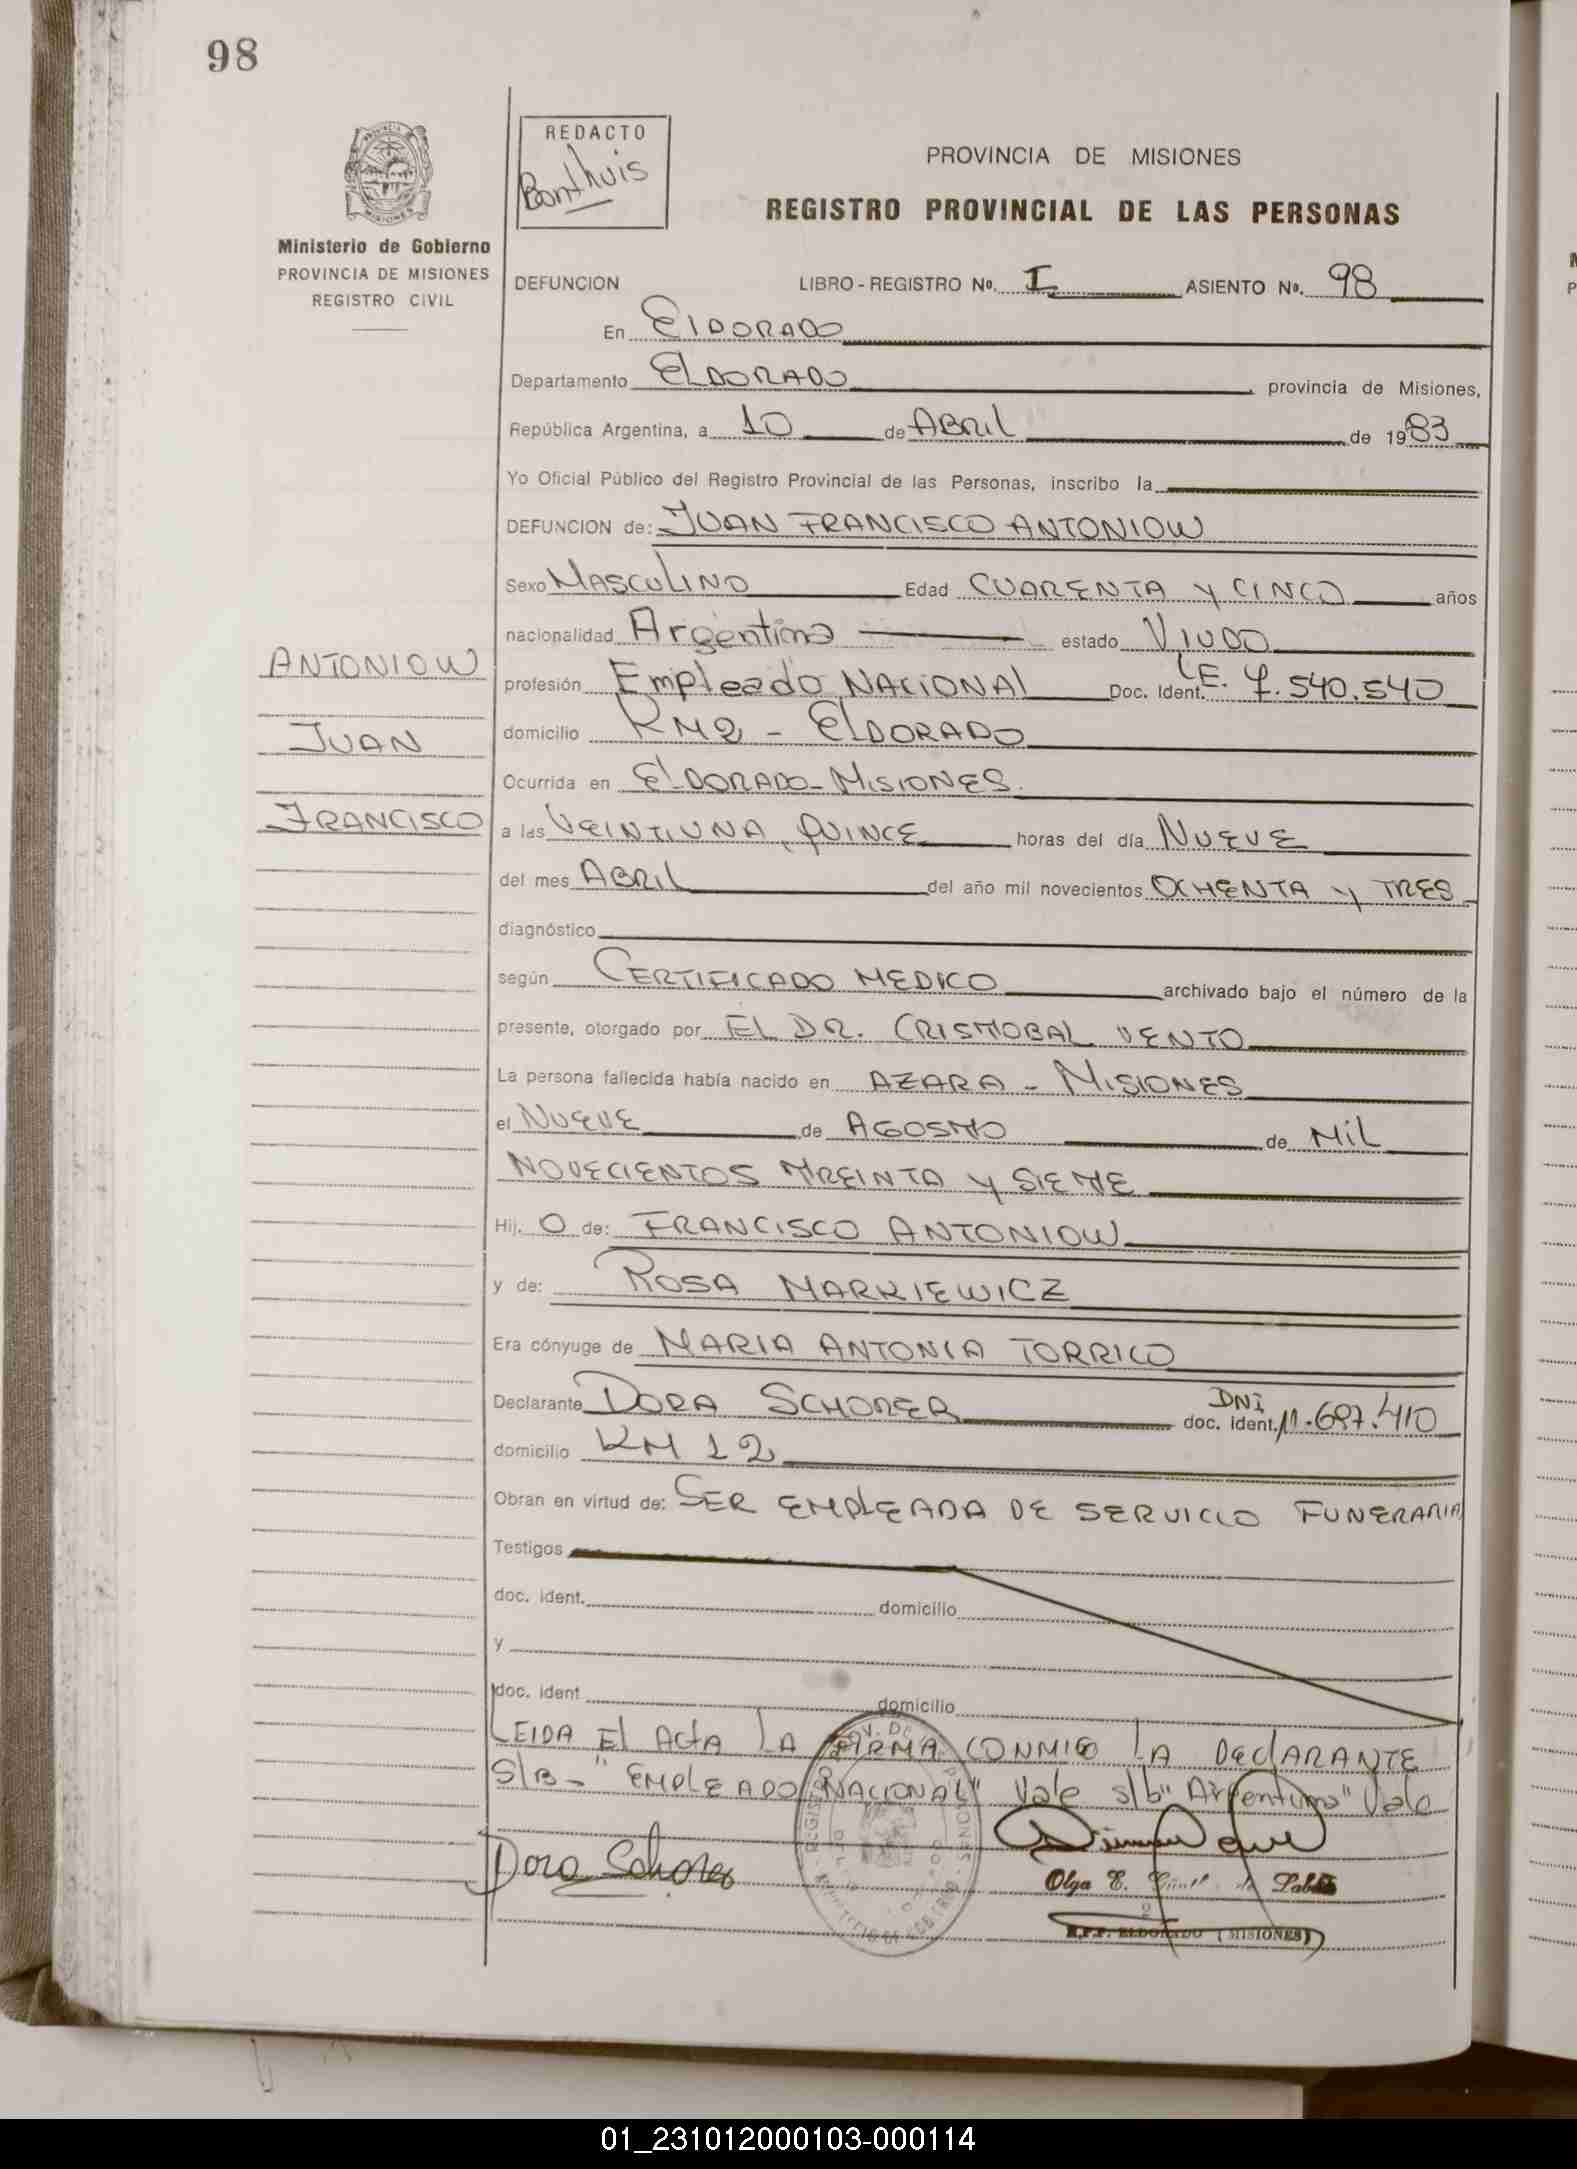 98
PROVINCIA DE
MISIONES
Ministerio de Gobierno
PROVINCIA DE MISIONES
REGISTRO CIVIL
REDACTO
Bonthuis
PROVINCIA DE MISIONES
REGISTRO PROVINCIAL DE LAS PERSONAS
DEFUNCION LIBRO-REGISTRO Nº. I ASIENTO Nº. 98
En ElDORADO
Departamento ELDORADO provincia de Misiones,
República Argentina, a 10 de ABRIL de 1983
Yo Oficial Público del Registro Provincial de las Personas, inscribo la
DEFUNCION de: JUAN FRANCISCO ANTONIOW
Sexo MASCULINO Edad CUARENTA Y CINCO años
nacionalidad Argentino estado VIUDO
profesión Empleado NACIONAL Doc. Ident. LE. 7.540.540
domicilio KM2 - ELDORADO
Ocurrida en ELDORADO-MISIONES.
a las VEINTIUNA, QUINCE horas del día NUEVE
del mes ABRIL del año mil novecientos OCHENTA Y TRES
diagnóstico
según CERTIFICADO MEDICO archivado bajo el número de la
presente, otorgado por EL DR. CRISTOBAL VENTO
La persona fallecida había nacido en AZARA - MISIONES
el NUEVE de AGOSTO de MIL
NOVECIENTOS TREINTA Y SIETE
Hij. O de: FRANCISCO ANTONIOW
y de: ROSA MARKIEWICZ
Era cónyuge de MARIA ANTONIA TORRICO
Declarante DORA SCHORER doc. ident. DNI 11.697.410
domicilio KM 12
Obran en virtud de: SER EMPLEADA DE SERVICIO FUNERARIA
Testigos
doc. ident. domicilio
y
doc. ident domicilio
LEIDA El ActA LA FIRMA CONMIGO LA DECLARANTE
S/B- "EMPLEADO NACIONAL" Vale s/b "Argentino" Vale
Dora Schorer
Olga E. de
R.P.P. ELDORADO (MISIONES)
ANTONIOW
JUAN
FRANCISCO
01_231012000103-000114